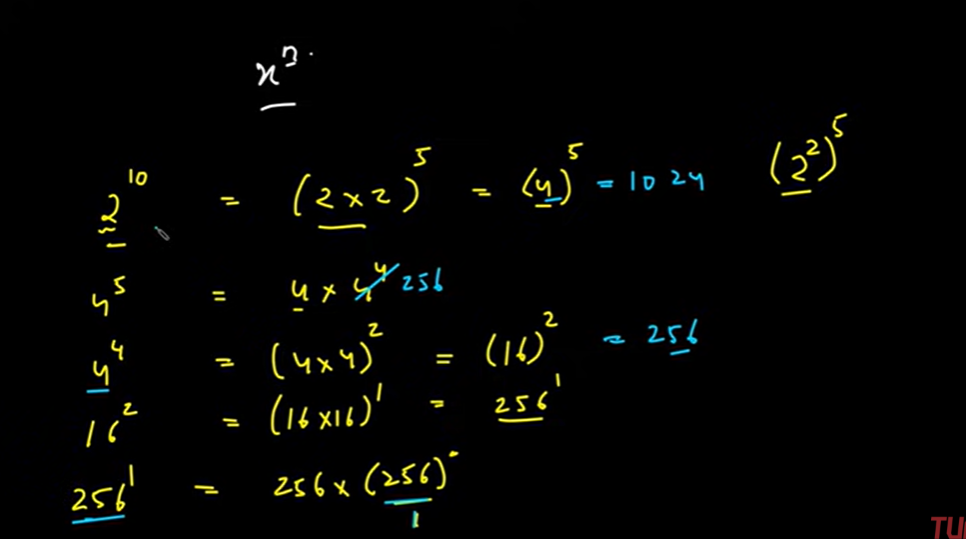 xⁿ
2¹⁰ = (2 × 2)⁵ = (4)⁵ = 1024 (2²)⁵
4⁵ = 4 × 4⁴ 256
4⁴ = (4 × 4)² = (16)² = 256
16² = (16 × 16)¹ = 256¹
256¹ = 256 × (256)⁰
1
TU